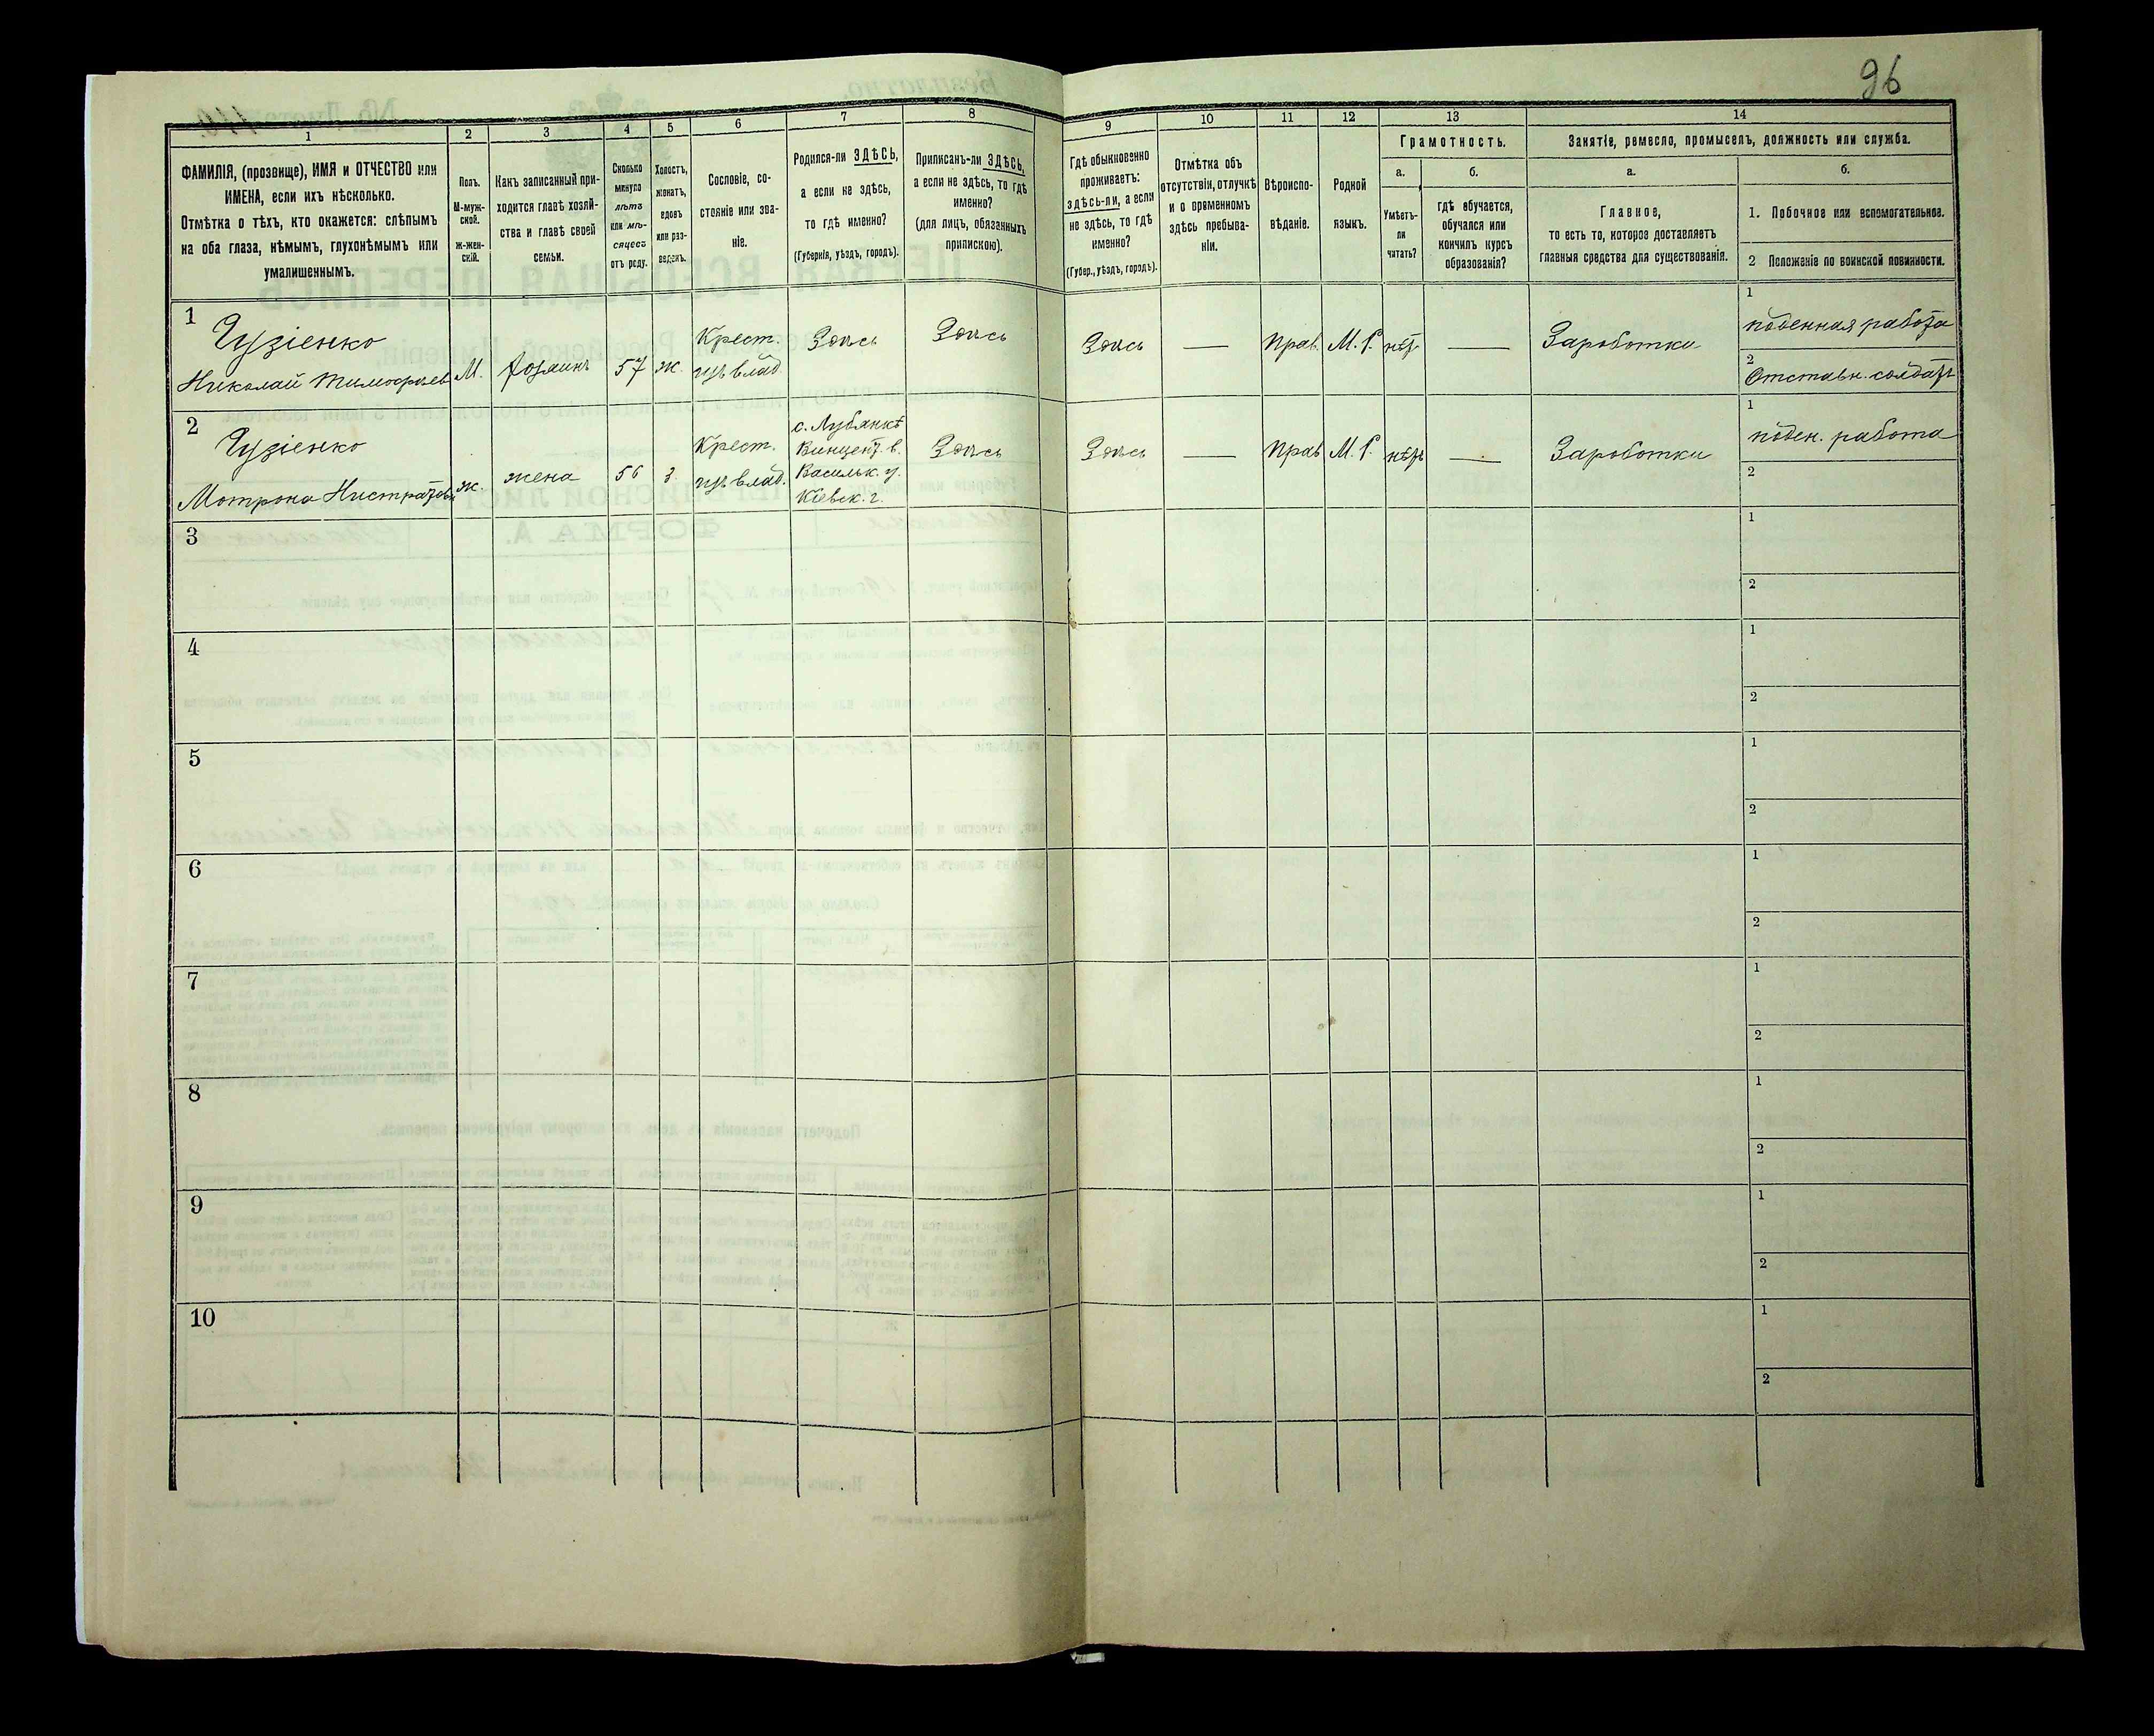 96
1
2
3
4
5
6
7
8
9
10
11
12
13
14
ФАМИЛІЯ, (прозвище), ИМЯ и ОТЧЕСТВО или
ИМЕНА, если ихъ нѣсколько.
Отмѣтка о тѣхъ, кто окажется: слѣпымъ
на оба глаза, нѣмымъ, глухонѣмымъ или
умалишеннымъ.
Полъ.
М-муж-
ской.
ж-жен-
скій.
Какъ записанный при-
ходится главѣ хозяй-
ства и главѣ своей
семьи.
Сколько
минуло
лѣтъ
или мѣ-
сяцевъ
отъ роду.
Холостъ,
женатъ,
вдовъ
или раз-
веденъ.
Сословіе, со-
стояніе или зва-
ніе.
Родился-ли ЗДѢСЬ,
а если не здѣсь,
то гдѣ именно?
(Губернія, уѣздъ, городъ).
Приписанъ-ли ЗДѢСЬ,
а если не здѣсь, то гдѣ
именно?
(для лицъ, обязанныхъ
припискою).
Гдѣ обыкновенно
проживаетъ:
здѣсь-ли, а если
не здѣсь, то гдѣ
именно?
(Губер., уѣздъ, городъ).
Отмѣтка объ
отсутствіи, отлучкѣ
и о временномъ
здѣсь пребыва-
ніи.
Вѣроиспо-
вѣданіе.
Родной
языкъ.
Грамотность.
а.
б.
Умѣетъ-
ли
читать?
гдѣ обучается,
обучался или
кончилъ курсъ
образованія?
Занятіе, ремесло, промыселъ, должность или служба.
а.
б.
Главное,
то есть то, которое доставляетъ
главныя средства для существованія.
1. Побочное или вспомогательное.
2 Положеніе по воинской повинности.
1
Чузіенко
Николай Тимофѣев
М.
хозяинъ
57
ж.
Крест.
изъ влад.
Здѣсь
Здѣсь
Здѣсь
—
Прав.
М. Р.
нѣтъ
—
Заработки
1
поденная работа
2
Отставн. солдатъ
2
Чузіенко
Мотрона
ж.
жена
56
з.
Крест.
изъ влад.
с. Лубянкѣ
Винцент. в.
Васильк. у.
Кіевск. г.
Здѣсь
Здѣсь
—
Прав
М. Р.
нѣтъ
—
Заработки
1
поден. работа
2
3
1
2
4
1
2
5
1
2
6
1
2
7
1
2
8
1
2
9
1
2
10
1
2